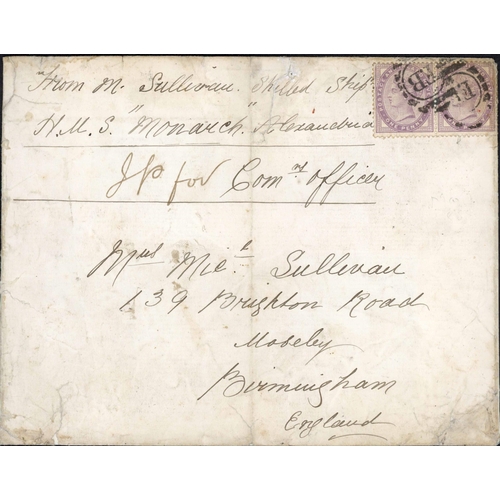 "From M. Sullivan. Skilled Ship^t
H.M.S. "Monarch" Alexandria
for Com^g officer
Mrs Mic^l Sullivan
139 Brighton Road
Moseley
Birmingham
England